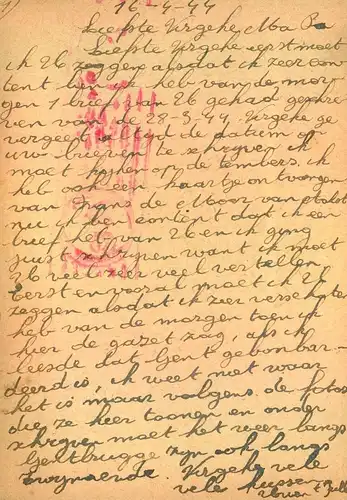 1)
16-4-44
Liefste Vrgeke, Moa
Liefste Vrgeke eerst moet
ik U zeggen alsdat ik zeer con
tent ben ik heb van de mor
gen 1 brief van U gehad geschre
ven van de 28-3-44, Vrgeke ge
vergeet altyd de datum op
uw brieven te schryven ik
moet kyken op de tembers, ik
heb ook een kaartje ontvangen
van Frans de Moor van
nu ik ben content dat ik een
brief heb van U en ik ging
just schryven want ik moet
U veel zeer veel vertellen
Eerst en vooral moet ik U
zeggen alsdat ik zeer verschoten
heb van de morgen toen ik
hier de gazet zag, als ik
leesde dat Gent gebombar-
deerd is, ik weet niet waar
het is maar volgens de fotos
die ze hier toonen en onder
schryven moet het weer langs
Gentbrugge zyn ook langs
Zwynaerde. Vrgeke vele
vele kussen